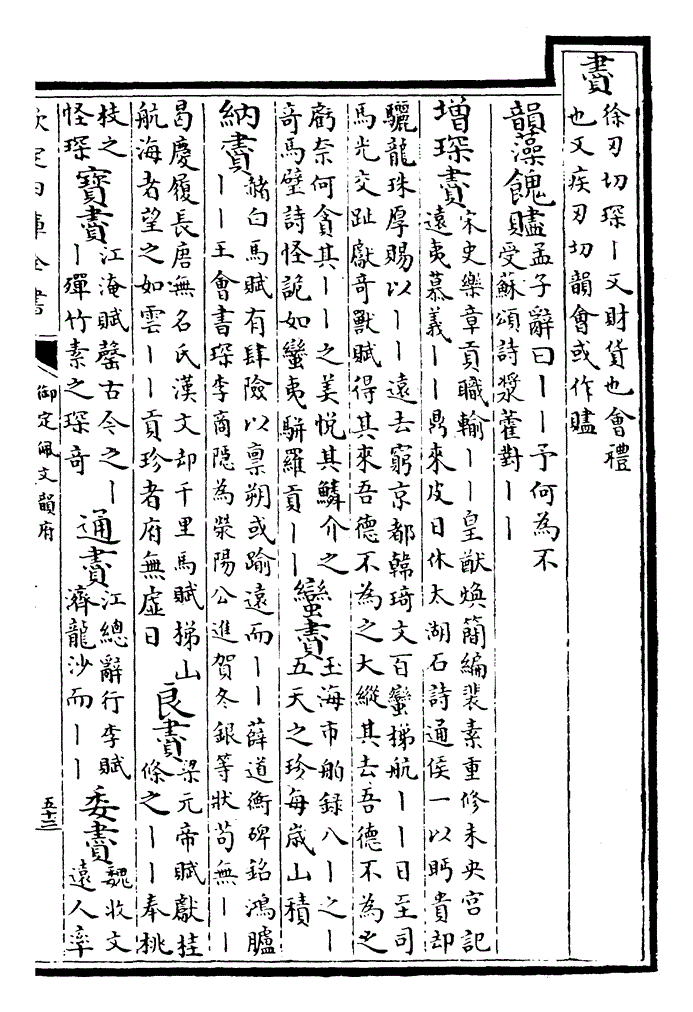 賮
徐刃切琛丨又財貨也會禮
也又疾刃切韻會或作贐
韻藻餽贐
孟子辭曰丨丨予何為不
受蘇頌詩漿藿對丨丨
增琛賮
宋史樂章貢職輸丨丨皇猷煥簡編裴素重修未央宮記
遠夷慕義丨丨鼎來皮日休太湖石詩通侯一以眄貴却
驪龍珠厚賜以丨丨遠去窮京都韓琦文百蠻梯航丨丨日至司
馬光交趾獻奇獸賦得其來吾德不為之大縱其去吾德不為之
虧奈何貪其丨丨之美悅其鱗介之
奇馬壁詩怪詭如蠻夷駢羅貢丨丨
蠻賮
玉海市舶録八丨之丨
五天之珍每歲山積
納賮
赭白馬賦有肆險以禀朔或踰遠而丨丨薛道衡碑銘鴻臚
丨丨王會書琛李商隱為滎陽公進賀冬銀等狀苟無丨丨
曷慶履長唐無名氏漢文却千里馬賦梯山
航海者望之如雲丨丨貢珍者府無虛日
良賮
梁元帝賦獻桂
條之丨丨奉桃
枝之
怪琛
寶賮
江淹賦罄古今之丨
丨殫竹素之琛奇
通賮
江總辭行李賦
濟龍沙而丨丨
委賮
魏收文
遠人率
欽定四庫全書
御定佩文韻府
五十三